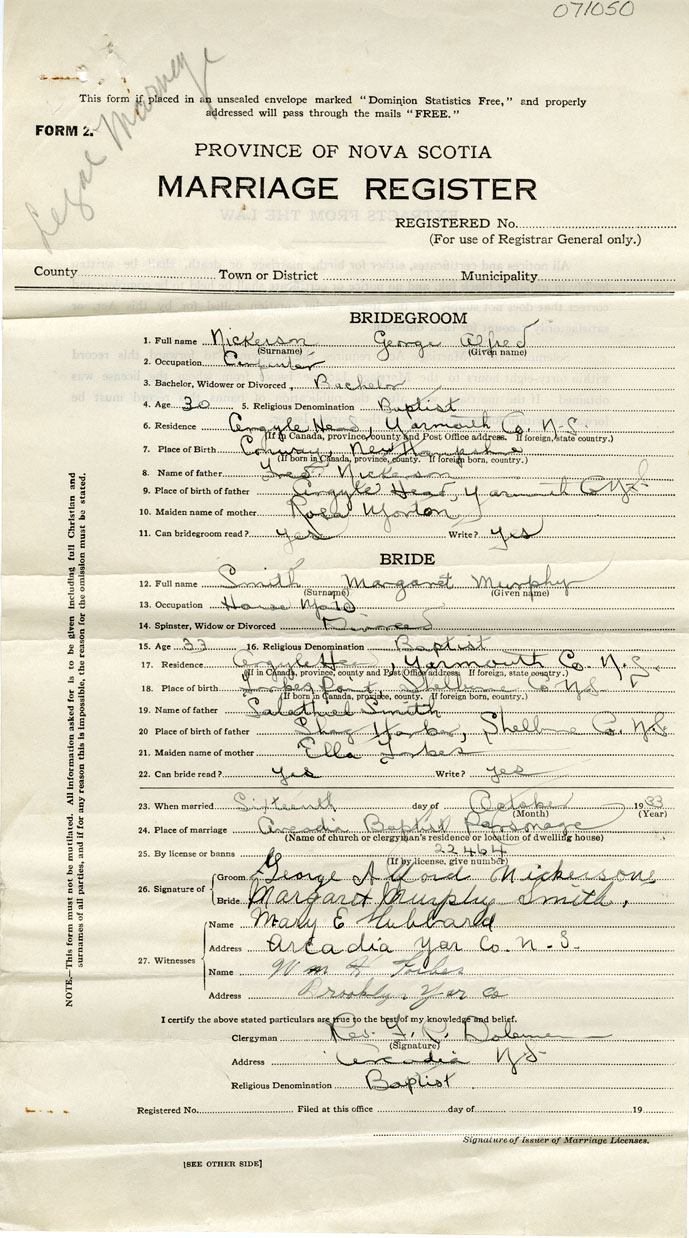 071050
This form if placed in an unsealed envelope marked "Dominion Statistics Free," and properly
addressed will pass through the mails "FREE."
FORM 2.
Legal
PROVINCE OF NOVA SCOTIA
MARRIAGE REGISTER
REGISTERED No.
(For use of Registrar General only.)
County Town or District Municipality
BRIDEGROOM
1. Full name Nickerson George Alfred
(Surname) (Given name)
2. Occupation Carpenter
3. Bachelor, Widower or Divorced Bachelor
4. Age 30 5. Religious Denomination Baptist
6. Residence Argyle Head, Yarmouth Co. N.S.
(If in Canada, province, county and Post Office address. If foreign, state country.)
7. Place of Birth Conway, New Hampshire
(If born in Canada, province, county. If foreign born, country.)
8. Name of father Nickerson
9. Place of birth of father Argyle Head, Yarmouth Co N.S.
10. Maiden name of mother Morton
11. Can bridegroom read? yes Write? yes
BRIDE
12. Full name Smith Margaret Murphy
(Surname) (Given name)
13. Occupation House Maid
14. Spinster, Widow or Divorced Divorced
15. Age 33 16. Religious Denomination Baptist
17. Residence Argyle Head, Yarmouth Co. N.S.
(If in Canada, province, county and Post Office address. If foreign, state country.)
18. Place of birth Forbes Point, Shelburne Co N.S.
(If born in Canada, province, county. If foreign born, country.)
19. Name of father Salathiel Smith
20 Place of birth of father Shag Harbor, Shelburne Co. N.S.
21. Maiden name of mother Ella Forbes
22. Can bride read? yes Write? yes
23. When married Sixteenth day of October 1933
(Month) (Year)
24. Place of marriage Arcadia Baptist Parsonage
(Name of church or clergyman's residence or location of dwelling house)
25. By license or banns 22464
(If by license, give number)
26. Signature of Groom George Alford Nickerson
Bride Margaret Murphy Smith,
27. Witnesses Name Mary E Hubbard
Address Arcadia Yar Co. N.S.
Name Wm H Forbes
Address Brooklyn, Yar Co
I certify the above stated particulars are true to the best of my knowledge and belief.
Clergyman Rev.
(Signature)
Address Arcadia N.S.
Religious Denomination Baptist
Registered No. Filed at this office day of 19
Signature of Issuer of Marriage Licenses.
[SEE OTHER SIDE]
NOTE.—This form must not be mutilated. All information asked for is to be given including full Christian and
surnames of all parties, and if for any reason this is impossible, the reason for the omission must be stated.